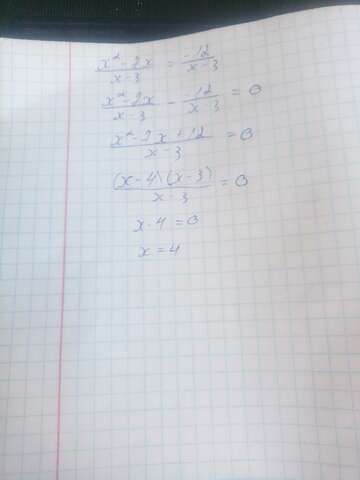 x²-2x / x-3 = -12 / x-3
x²-2x / x-3 - -12 / x-3 = 0
x²-2x+12 / x-3 = 0
(x-4)(x-3) / x-3 = 0
x-4=0
x=4